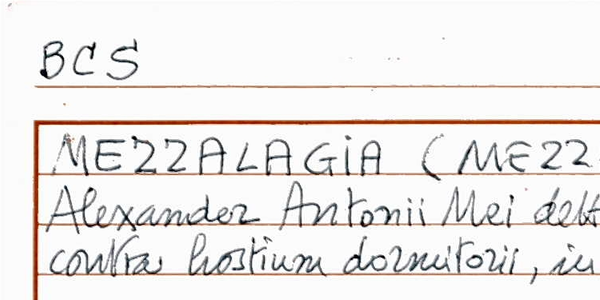 BCS
MEZZALAGIA (MEZZ
Alexander Antonii Mei dell
contra hostium dormitorii, in